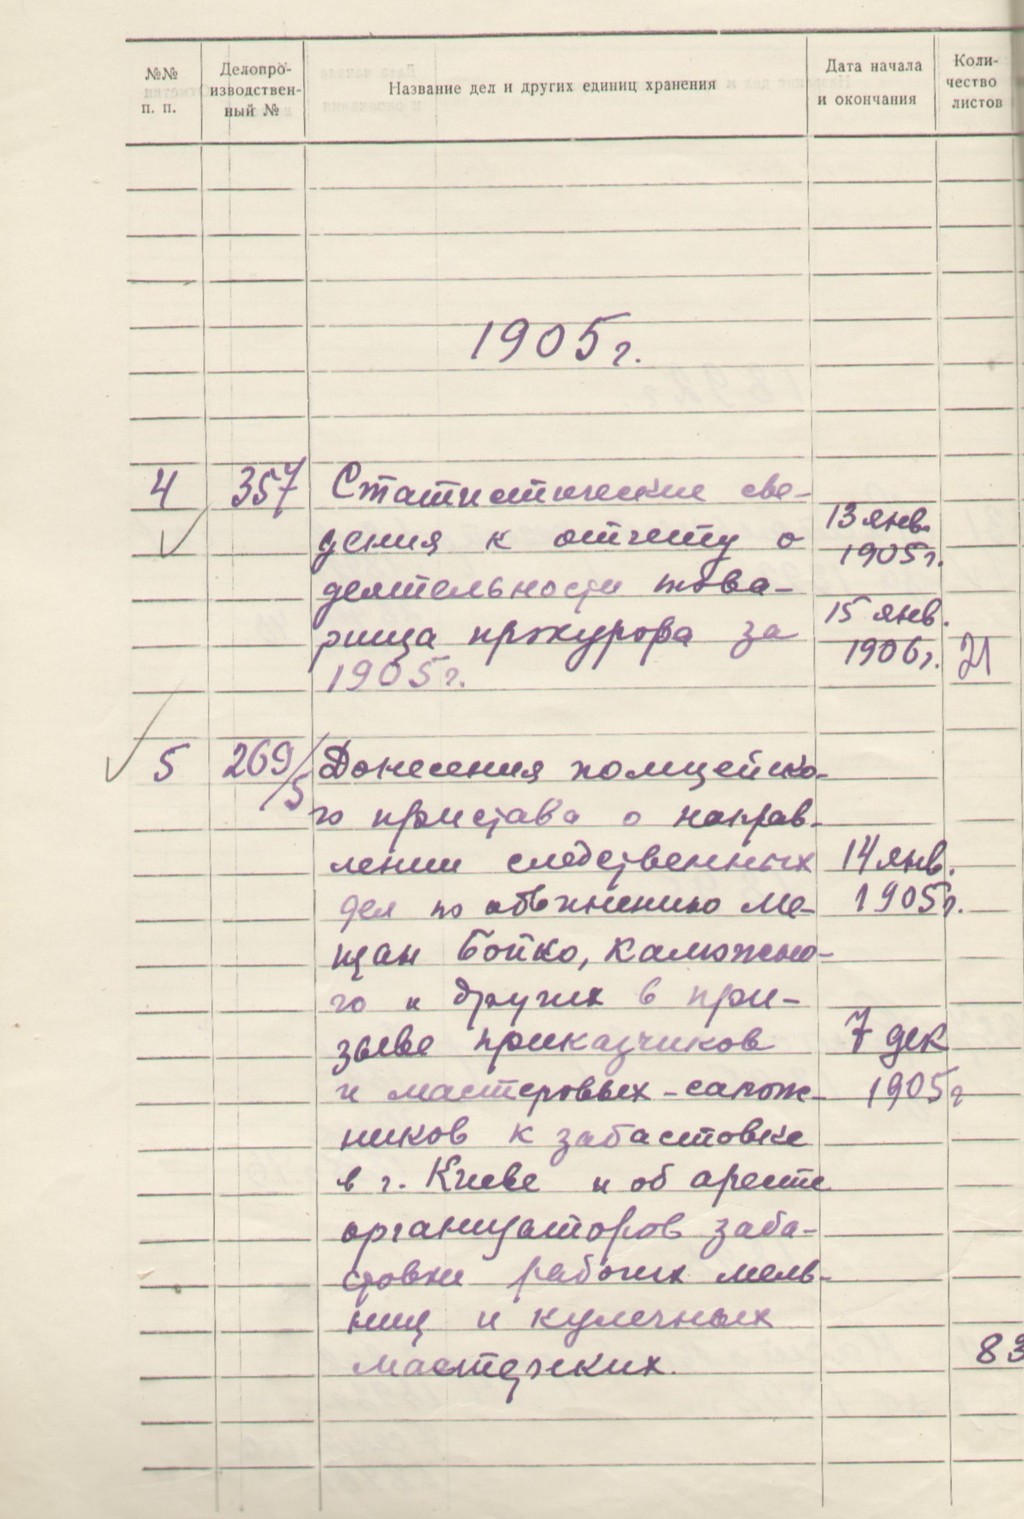 №№ п. п.
Делопро-
изводствен-
ный №
Название дел и других единиц хранения
Дата начала
и окончания
Коли-
чество
листов
1905 г.
4
357
Статистические све-
дения к отчету о
деятельности това-
рища прокурора за
1905 г.
13 янв.
1905 г.
15 янв.
1906 г.
21
5
269/5
Донесения полицейско-
го пристава о направ-
лении следственных
дел по обвинению ме-
щан Бойко, Калюжно-
го и других в при-
зыве приказчиков
и мастеровых-сапож-
ников к забастовке
в г. Киеве и об аресте
организаторов заба-
стовки рабочих мель-
ниц и кулечных
мастерских.
14 янв.
1905 г.
7 дек
1905 г
83